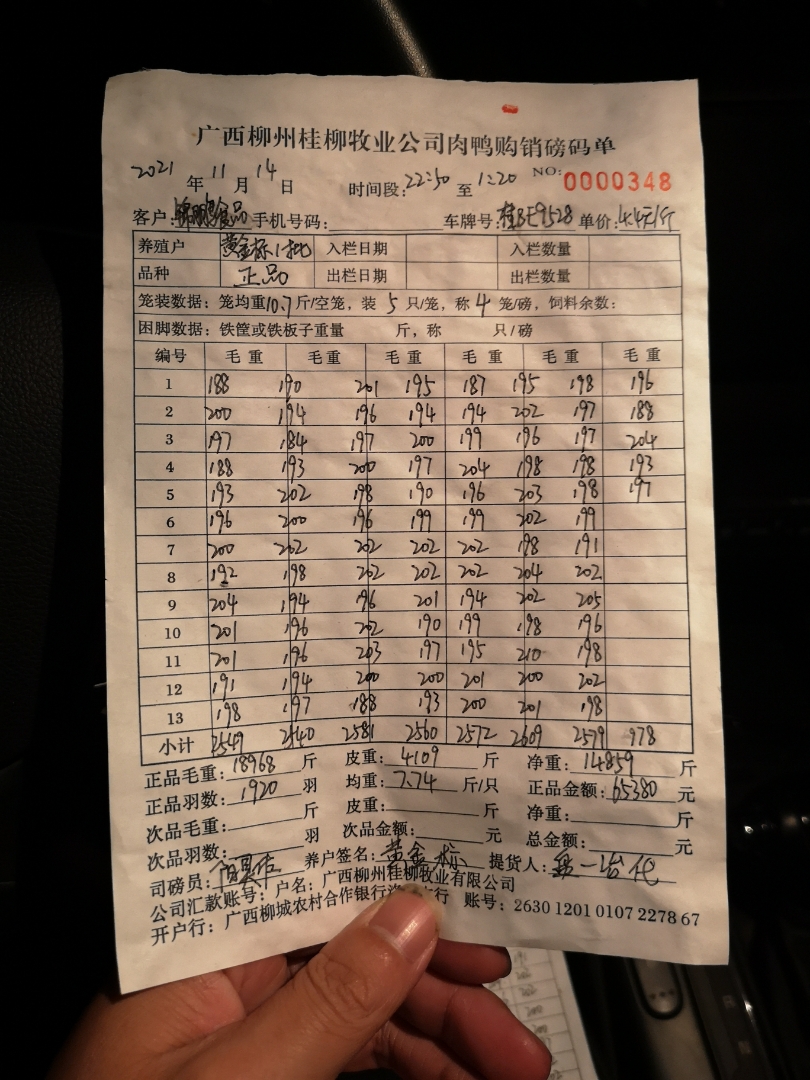 广西柳州桂柳牧业公司肉鸭购销磅码单
2021年11月14日 时间段:22:50至1:20 NO: 0000348
客户: 食品 手机号码: 车牌号:桂BE9528 单价:4.4元/斤
养殖户 黄金标1批 入栏日期 入栏数量
品种 正品 出栏日期 出栏数量
笼装数据:笼均重10.7斤/空笼,装5只/笼,称4笼/磅,饲料余数:
困脚数据:铁筐或铁板子重量 斤,称 只/磅
编号 毛重 毛重 毛重 毛重 毛重 毛重
1 188 190 201 195 187 195 198 196
2 200 194 196 194 194 202 197 188
3 197 184 197 200 199 196 197 204
4 188 193 200 197 204 198 198 193
5 193 202 198 190 196 203 198 197
6 196 200 196 199 199 202 199
7 200 202 202 202 202 198 191
8 192 198 202 202 202 204 202
9 204 194 196 201 194 202 205
10 201 196 202 190 199 198 196
11 201 196 203 197 195 210 198
12 191 194 200 200 201 200 202
13 198 197 188 193 200 201 198
小计 2549 2540 2581 2560 2572 2609 2579 978
正品毛重:18968斤 皮重:4109斤 净重:14859斤
正品羽数:1920羽 均重:7.74斤/只 正品金额:65380元
次品毛重: 斤 皮重: 斤 净重: 斤
次品羽数: 羽 次品金额: 元 总金额: 元
司磅员: 养户签名:黄金标 提货人:
公司汇款账号:户名:广西柳州桂柳牧业有限公司
开户行:广西柳城农村合作银行 行 账号:2630 1201 0107 2278 67